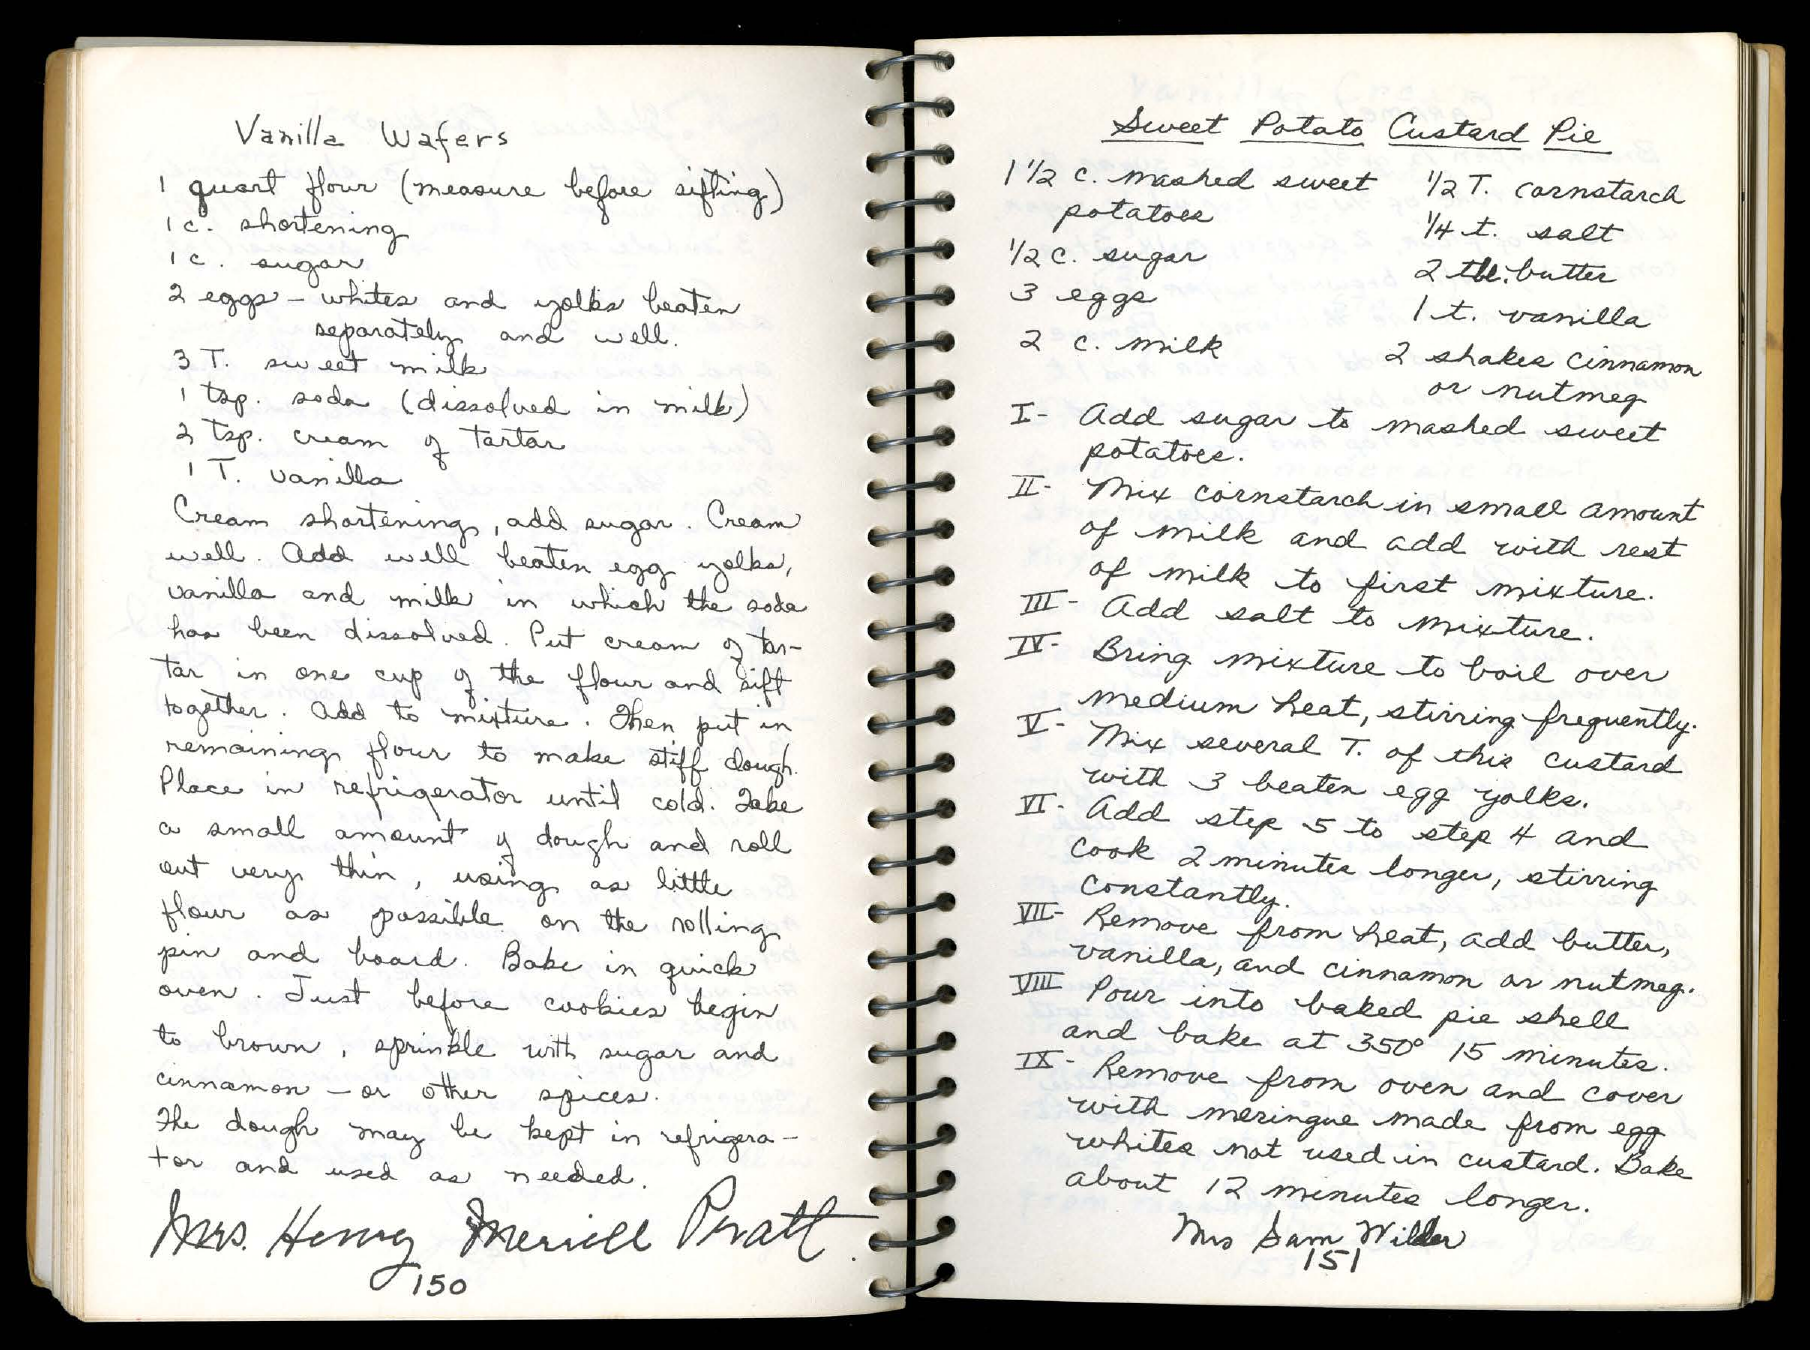 Vanilla Wafers
1 quart flour (measure before sifting)
1 c. shortening
1 c. sugar
2 eggs – whites and yolks beaten
separately and well.
3 T. sweet milk
1 tsp. soda (dissolved in milk)
2 tsp. cream of tartar
1 T. vanilla
Cream shortening, add sugar. Cream
well. Add well beaten egg yolks,
vanilla and milk in which the soda
has been dissolved. Put cream of tar-
tar in one cup of the flour and sift
together. Add to mixture. Then put in
remaining flour to make stiff dough.
Place in refrigerator until cold. Take
a small amount of dough and roll
out very thin, using as little
flour as possible on the rolling
pin and board. Bake in quick
oven. Just before cookies begin
to brown, sprinkle with sugar and
cinnamon – or other spices.
The dough may be kept in refrigera-
tor and used as needed.
Mrs. Henry Merrill Pratt.
150
Sweet Potato Custard Pie
1 1/2 c. mashed sweet
potatoes
1/2 c. sugar
3 eggs
2 c. milk
1/2 T. cornstarch
1/4 t. salt
2 tbl. butter
1 t. vanilla
2 shakes cinnamon
or nutmeg
I- Add sugar to mashed sweet
potatoes.
II- Mix cornstarch in small amount
of milk and add with rest
of milk to first mixture.
III- Add salt to mixture.
IV- Bring mixture to boil over
medium heat, stirring frequently.
V- Mix several T. of this custard
with 3 beaten egg yolks.
VI- Add step 5 to step 4 and
cook 2 minutes longer, stirring
constantly.
VII- Remove from heat, add butter,
vanilla, and cinnamon or nutmeg.
VIII Pour into baked pie shell
and bake at 350° 15 minutes.
IX- Remove from oven and cover
with meringue made from egg
whites not used in custard. Bake
about 12 minutes longer.
Mrs Sam Wilder
151